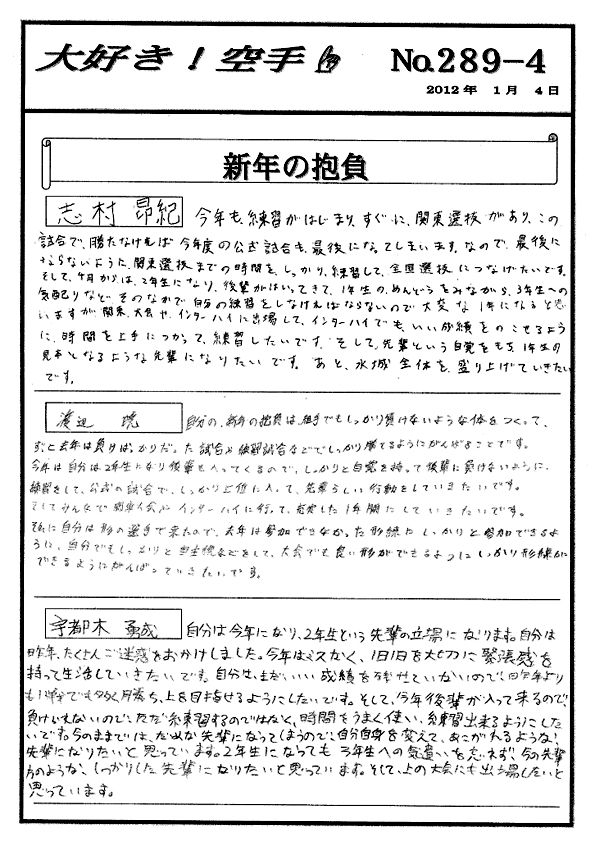 大好き！空手 No.289-4
2012年 1月 4日
新年の抱負
志村 昂紀
今年も、練習がはじまり、すぐに、関東選抜があり、この
試合で、勝たなければ今年度の公式試合も、最後になってしまいます。なので、最後に
ならないように、関東選抜までの時間を、しっかり、練習して、全国選抜につなげたいです。
そして、4月からは、2年生になり、後輩がはいってきて、1年生の、めんどうをみながら、3年生への
気配りなど、そのなかで自分の練習をしなければならないので大変な1年になると思
いますが関東大会や、インターハイに出場して、インターハイでも、いい成績をのこせるよう
に、時間を上手につかって、練習したいです。そして、先輩という自覚をもち、1年生の
見本となるような先輩になりたいです。あと、水城全体を、盛り上げていきたい
です。
渡辺
自分の、新年の抱負は、組手でもしっかり負けないような体をつくって、
去年は負けばっかりだった試合や練習試合などでしっかり勝てるようにがんばることです。
今年は自分は2年生になり後輩も入ってくるので、しっかりと自覚を持って後輩に負けないように、
練習をして、公式の試合で、しっかり上位に入って、先輩らしい行動をしていきたいです。
そしてみんなで関東大会やインターハイに行って、充実した1年間にしていきたいです。
それに自分は形の選手で来たので、去年は参加できなかった形練にしっかりと参加できるよ
うに、自分でもしっかりと自主練などをして、大会でも良い形ができるようにしっかり形練が
できるようにがんばっていきたいです。
宇都木 勇成
自分は今年になり、2年生という先輩の立場になります。自分は
昨年、たくさんご迷惑をおかけしました。今年はミスなく、1日1日を大切に緊張感を
持って生活していきたいです。自分はまだいい成績を残せていないので、昨年より
も1勝でも多く勝ち、上を目指せるようにしたいです。そして、今年後輩が入って来るので、
負けいれないので、ただ練習するのではなく、時間をうまく使い、練習出来るようにした
いです。今のままでは、だめな先輩になってしまうので、自分自身を変えて、あこがれるような、
先輩になりたいと思っています。2年生になっても3年生への気遣いを忘れず、今の先輩
方のような、しっかりした先輩になりたいと思っています。そして、上の大会にも出場したいと
思っています。